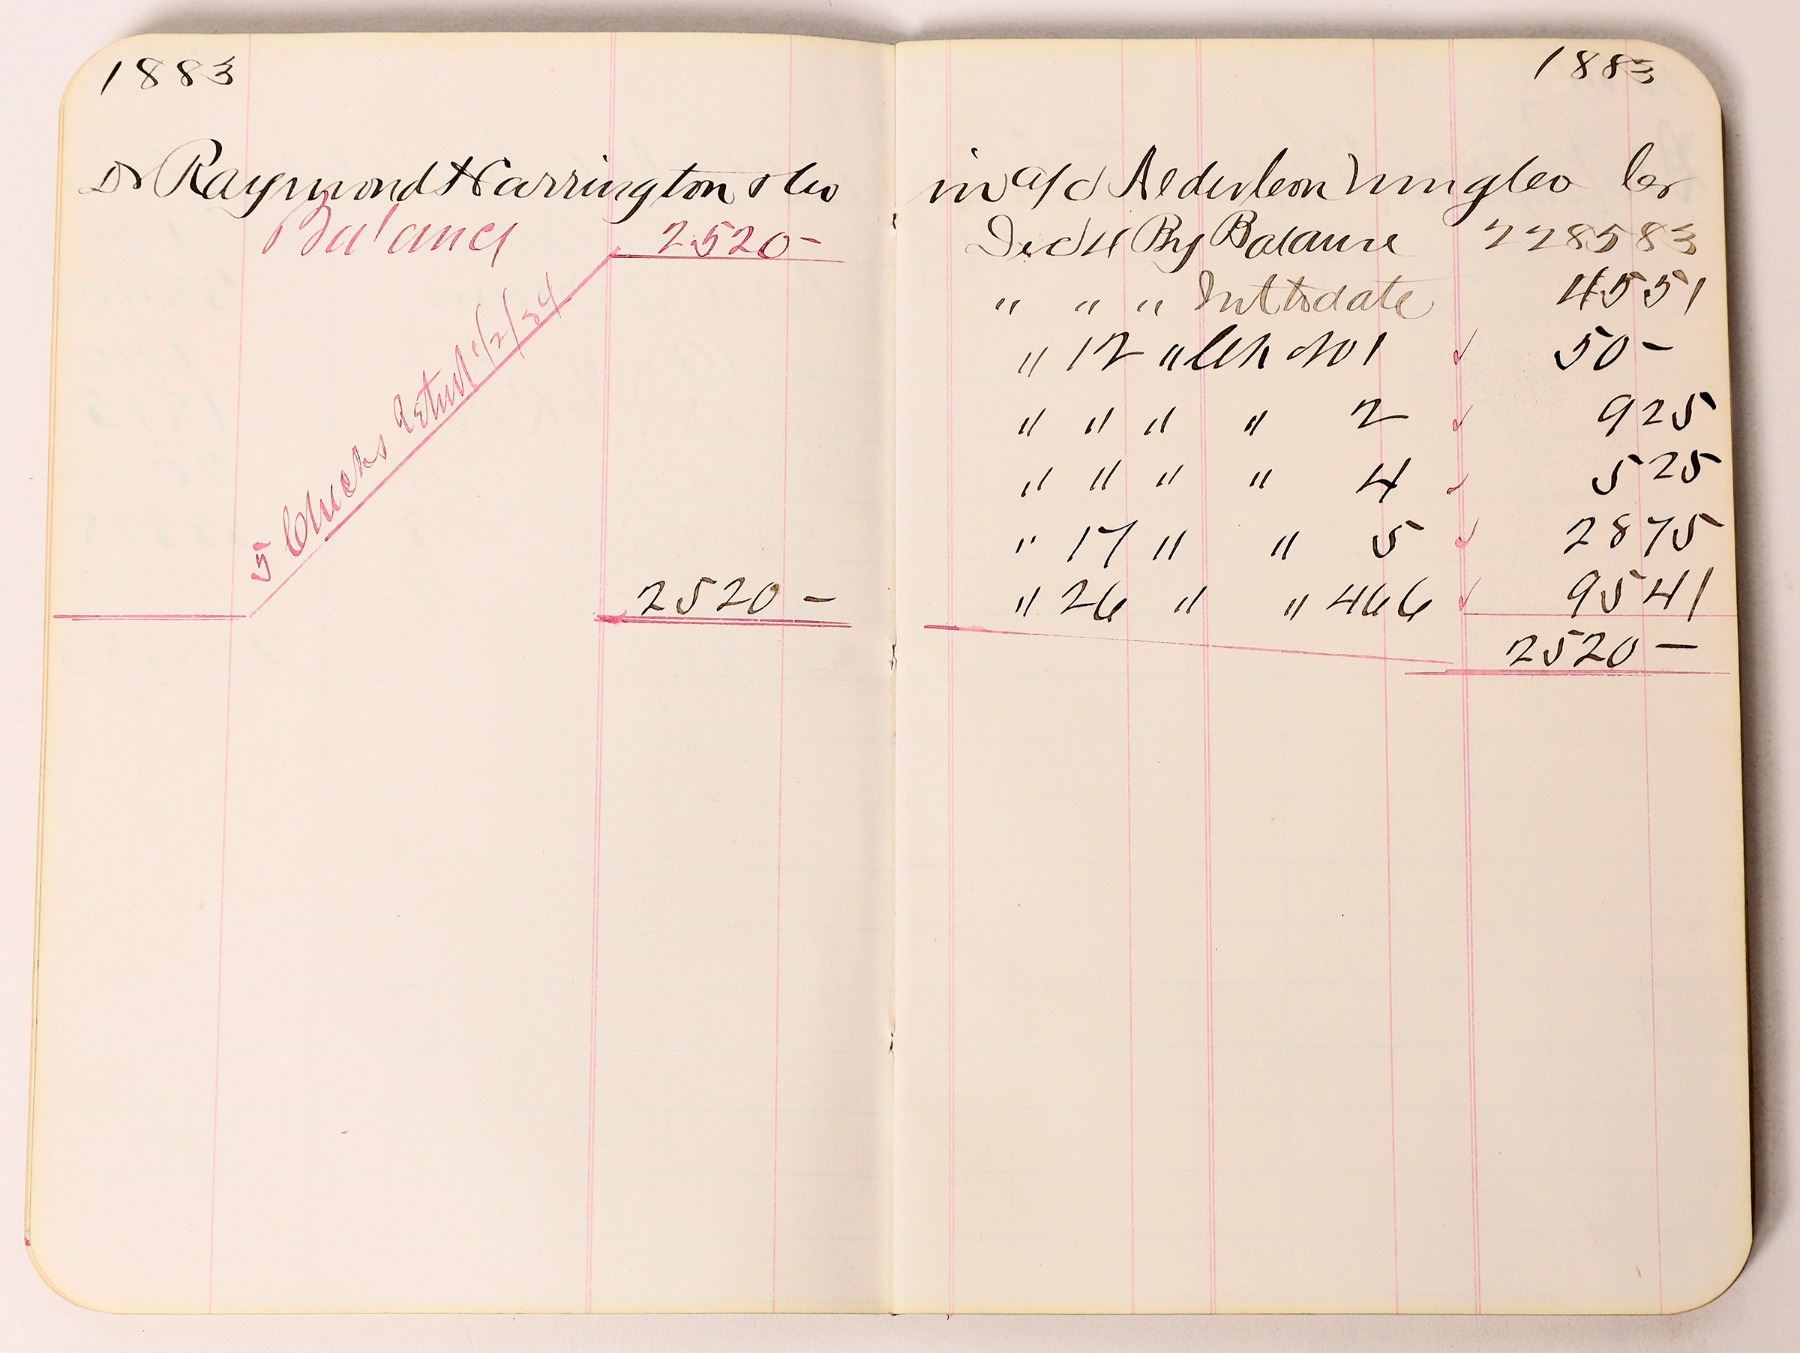 1883
Dr Raymond Harrington & Co
Balance 2520-
5 Checks Returd 1/2/84
2520 -
1883
in a/c Nederleon Mng Co Cr
Dec 4 By Balance 228583
" " " Int to date 4551
" 12 " Ck No 1 50-
" " " " 2 925
" " " " 4 525
" 17 " " 5 2875
" 26 " " 466 9541
2520 -